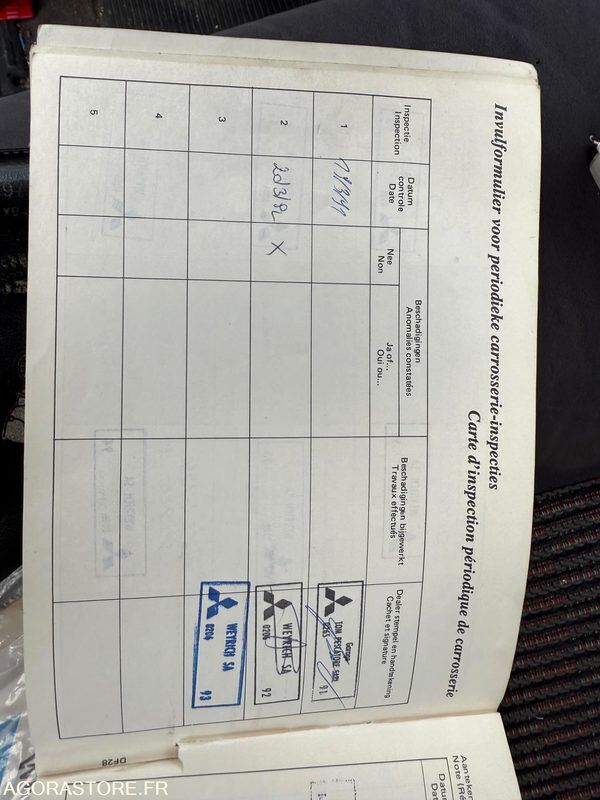 Invulformulier voor periodieke carrosserie-inspecties
Carte d'inspection périodique de carrosserie
Inspectie
Inspection
Datum
controle
Date
Beschadigingen
Anomalies constatées
Nee
Non
Ja of...
Oui ou...
Beschadigingen bijgewerkt
Travaux effectués
Dealer stempel en handtekening
Cachet et signature
1
Garage
TOM PESCATORE
0265
91
2
20/3/92
X
WEYRICH SA
0204
92
3
WEYRICH SA
0204
93
4
5
DF28
Aanteken
Note (Ré
Datu
Dat
AGORASTORE.FR